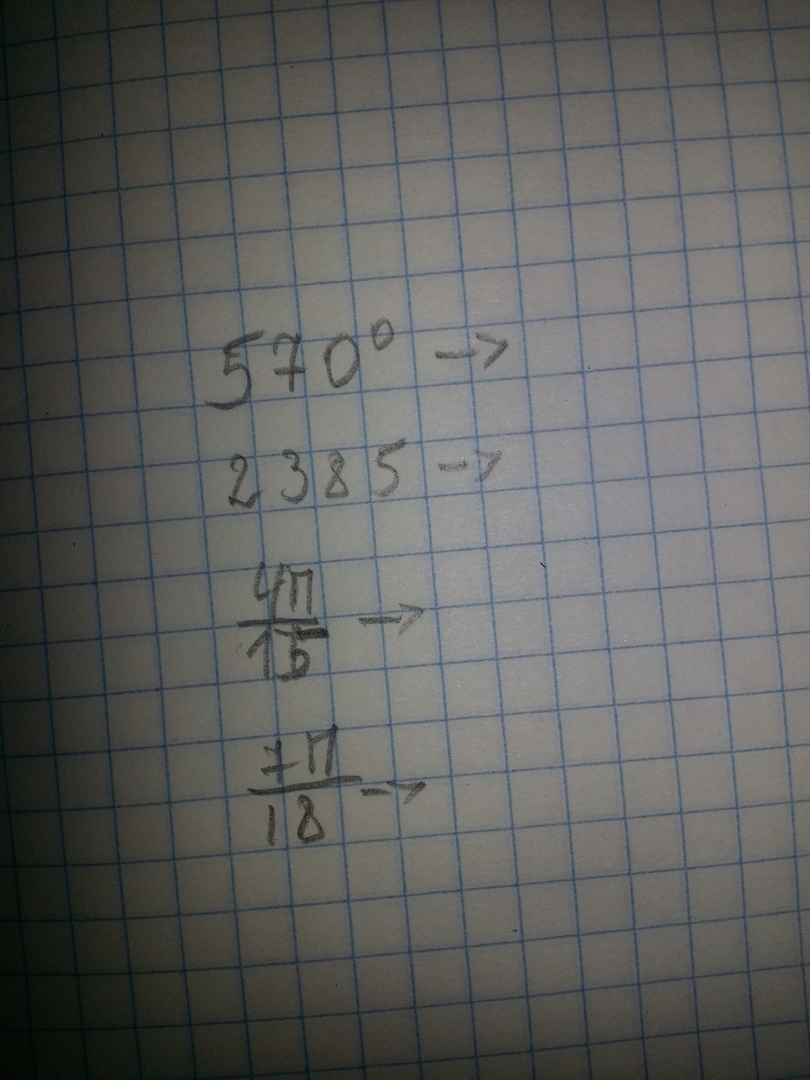 570° →
2385 →
4π/15 →
7π/18 →